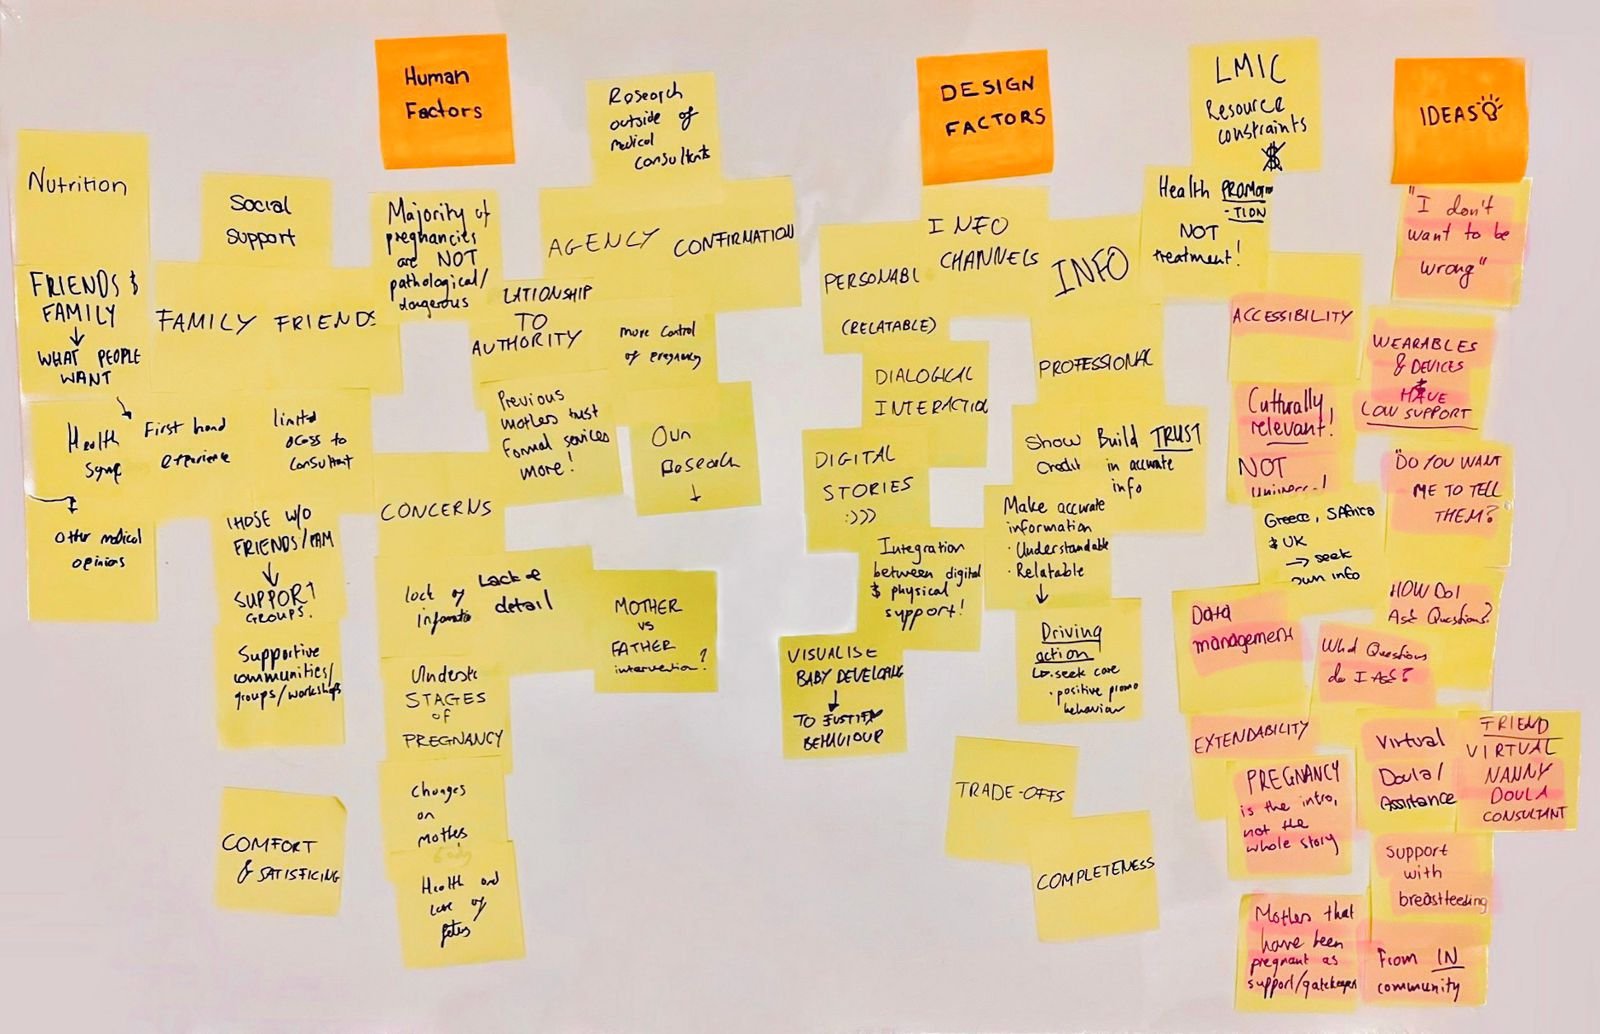 Human
Factors
Nutrition
FRIENDS &
FAMILY
WHAT PEOPLE
WANT
Health
Symp
Other medical
opinions
Social
Support
FAMILY
FRIENDS
First hand
experience
limited
access to
consultant
THOSE W/O
FRIENDS/FAM
SUPPORT
GROUPS.
Supportive
communities/
groups/workshops
COMFORT
& SATISFICING
Majority of
pregnancies
are NOT
pathological/
dangerous
Research
outside of
medical
consultants
AGENCY
CONFIRMATION
LATIONSHIP
TO
AUTHORITY
more control
of pregnancy
Previous
mothers trust
formal services
more!
Own
Research
CONCERNS
lack of
information
Lack of
detail
MOTHER
vs
FATHER
intervention?
STAGES
OF
PREGNANCY
Changes
on
mothers
body
Health and
care of
fetus
DESIGN
FACTORS
PERSONABL
(RELATABLE)
INFO
CHANNELS
INFO
DIALOGICAL
INTERACTIO
PROFESSIONAL
DIGITAL
STORIES
:)))
Show
Credit
Build TRUST
in accurate
info
Integration
between digital
& physical
support!
Make accurate
information
· Understandable
· Relatable
Driving
action
seek care
· positive promo
behaviour
VISUALISE
BABY DEVELOPING
TO JUSTIFY
BEHAVIOUR
TRADE-OFFS
COMPLETENESS
LMIC
Resource
constraints
$
Health PROMO
-TION
NOT
treatment!
ACCESSIBILITY
Culturally
relevant!
NOT
Universal
Greece, SAfrica
& UK
→ seek
own info
Data
management
EXTENDABILITY
PREGNANCY
is the intro,
not the
whole story
Mothers that
have been
pregnant as
support/gatekeeper
IDEAS
"I don't
want to be
wrong"
WEARABLES
& DEVICES
HAVE
LOW SUPPORT
"DO YOU WANT
ME TO TELL
THEM?
HOW DO I
Ask Questions?
What Questions
do I Ask?
Virtual
Doula/
Assistance
FRIEND
VIRTUAL
NANNY
DOULA
CONSULTANT
Support
with
breastfeeding
From IN
community